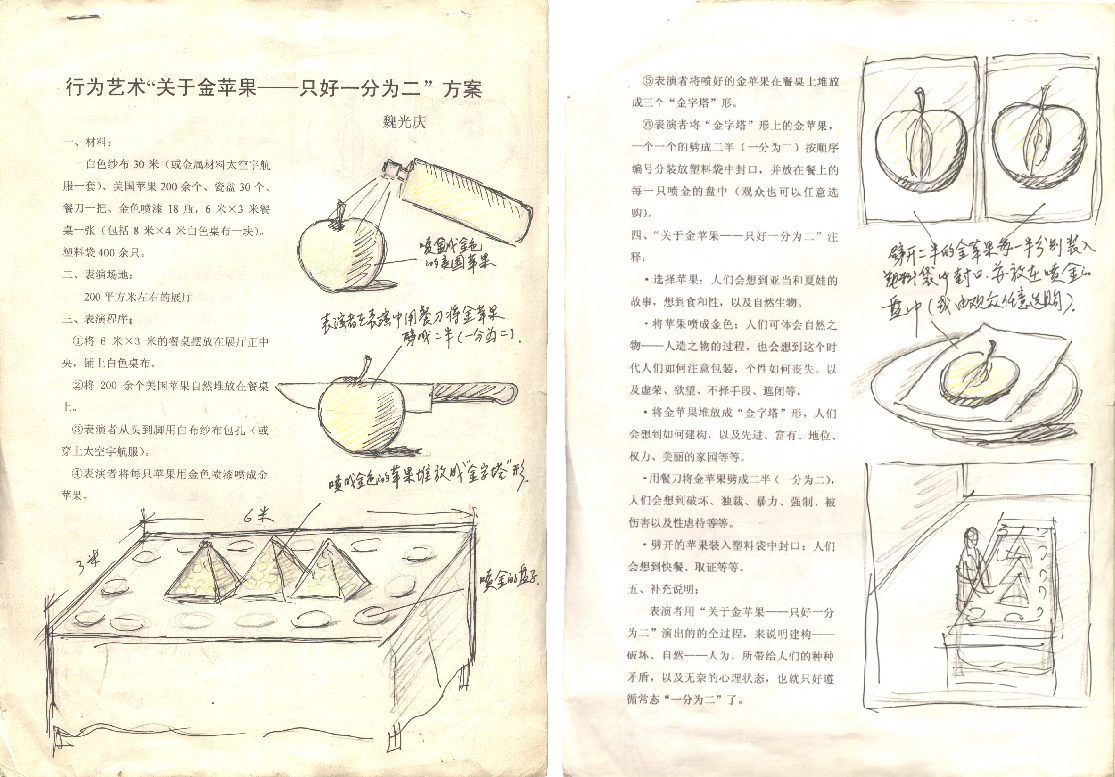 行为艺术“关于金苹果——只好一分为二”方案
魏光庆
一、材料：
白色纱布30米（或金属材料太空宇航
服一套）、美国苹果200余个、瓷盘30个、
餐刀一把、金色喷漆18瓶，6米×3米餐
桌一张（包括8米×4米白色桌布一块）。
塑料袋400余只。
二、表演场地：
200平方米左右的展厅
三、表演程序：
①将6米×3米的餐桌摆放在展厅正中
央，铺上白色桌布，
②将200余个美国苹果自然堆放在餐桌
上。
③表演者从头到脚用白布纱布包扎（或
穿上太空宇航服）；
④表演者将每只苹果用金色喷漆喷成金
苹果。
喷成金色
的美国苹果
表演者在表演中用餐刀将金苹果
劈成二半（一分为二）．
喷成金色的苹果堆放成“金字塔”形．
6米
3米
喷金的盘子
⑤表演者将喷好的金苹果在餐桌上堆放
成三个“金字塔”形。
⑥表演者将“金字塔”形上的金苹果，
一个一个的劈成二半（一分为二）按顺序
编号分装放塑料袋中封口，并放在餐上的
每一只喷金的盘中（观众也可以任意选
购）．
四、“关于金苹果——只好一分为二”注
释．
·选择苹果，人们会想到亚当和夏娃的
故事，想到食和性，以及自然生物。
·将苹果喷成金色：人们可体会自然之
物——人造之物的过程，也会想到这个时
代人们如何注意包装，个性如何丧失．以
及虚荣、欲望、不择手段、遮闭等。
·将金苹果堆放成“金字塔”形，人们
会想到如何建构．以及先进．富有．地位、
权力、美丽的家园等等。
·用餐刀将金苹果劈成二半（一分为二），
人们会想到破坏、独裁、暴力、强制．被
伤害以及性虐待等等。
·劈开的苹果装入塑料袋中封口：人们
会想到快餐、取证等等。
五、补充说明：
表演者用“关于金苹果——只好一分
为二”演出的的全过程，来说明建构——
破坏、自然——人为．所带给人们的种种
矛盾，以及无奈的心理状态，也就只好遵
循常态“一分为二”了。
劈开二半的金苹果每一半分别装入
塑料袋中封口．并放在喷金的
盘中（或由观众任意选购）．